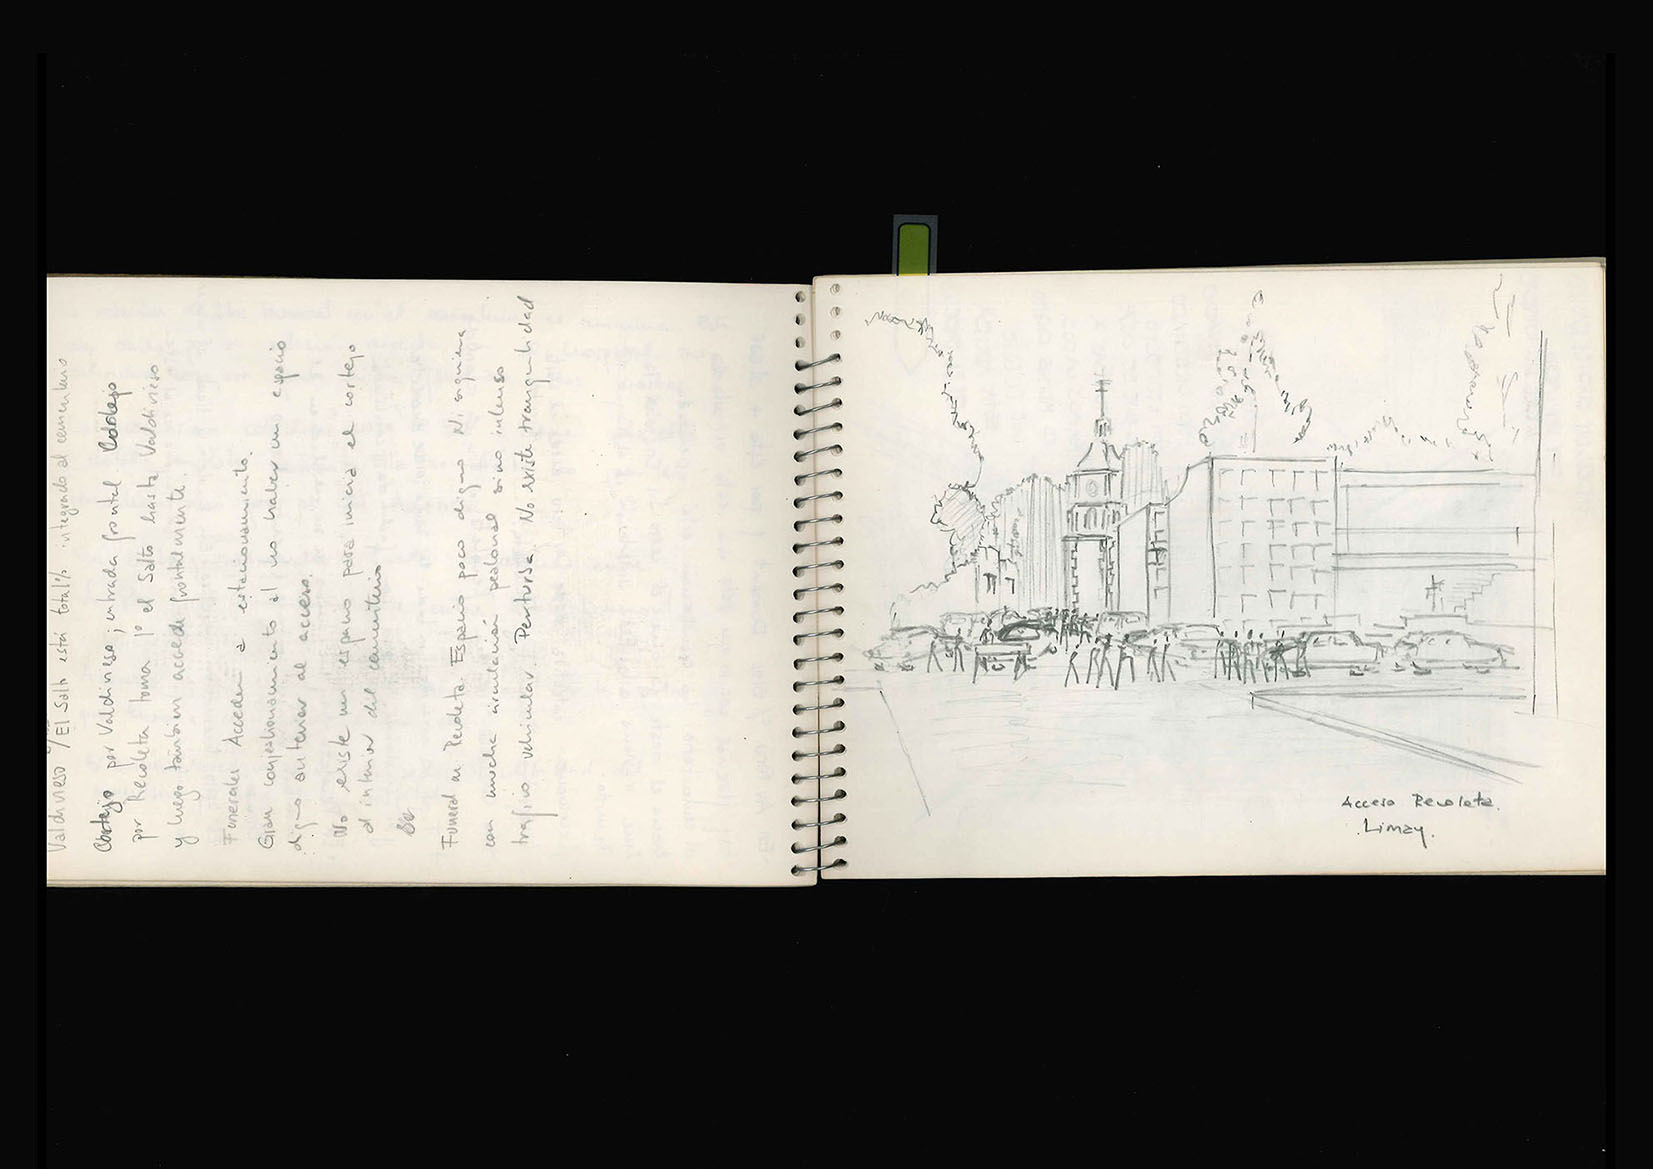 Valdivieso / El Salto está total% integrado al cementerio
Cortejo por Valdivieso; entrada frontal Cortejo
por Recoleta toma 1º el Salto hasta Valdivieso
y luego también accede frontalmente.
Funerales Acceden a estacionamiento.
Gran congestionamiento al no haber un espacio
digno anterior al acceso.
No existe un espacio para iniciar el cortejo
al interior del cementerio
Se
Funeral en Recoleta Espacio poco digno Ni siquiera
con mucha circulación peatonal sino intenso
trafico vehicular Perturba. No existe tranquilidad
Acceso Recoleta.
Limay.